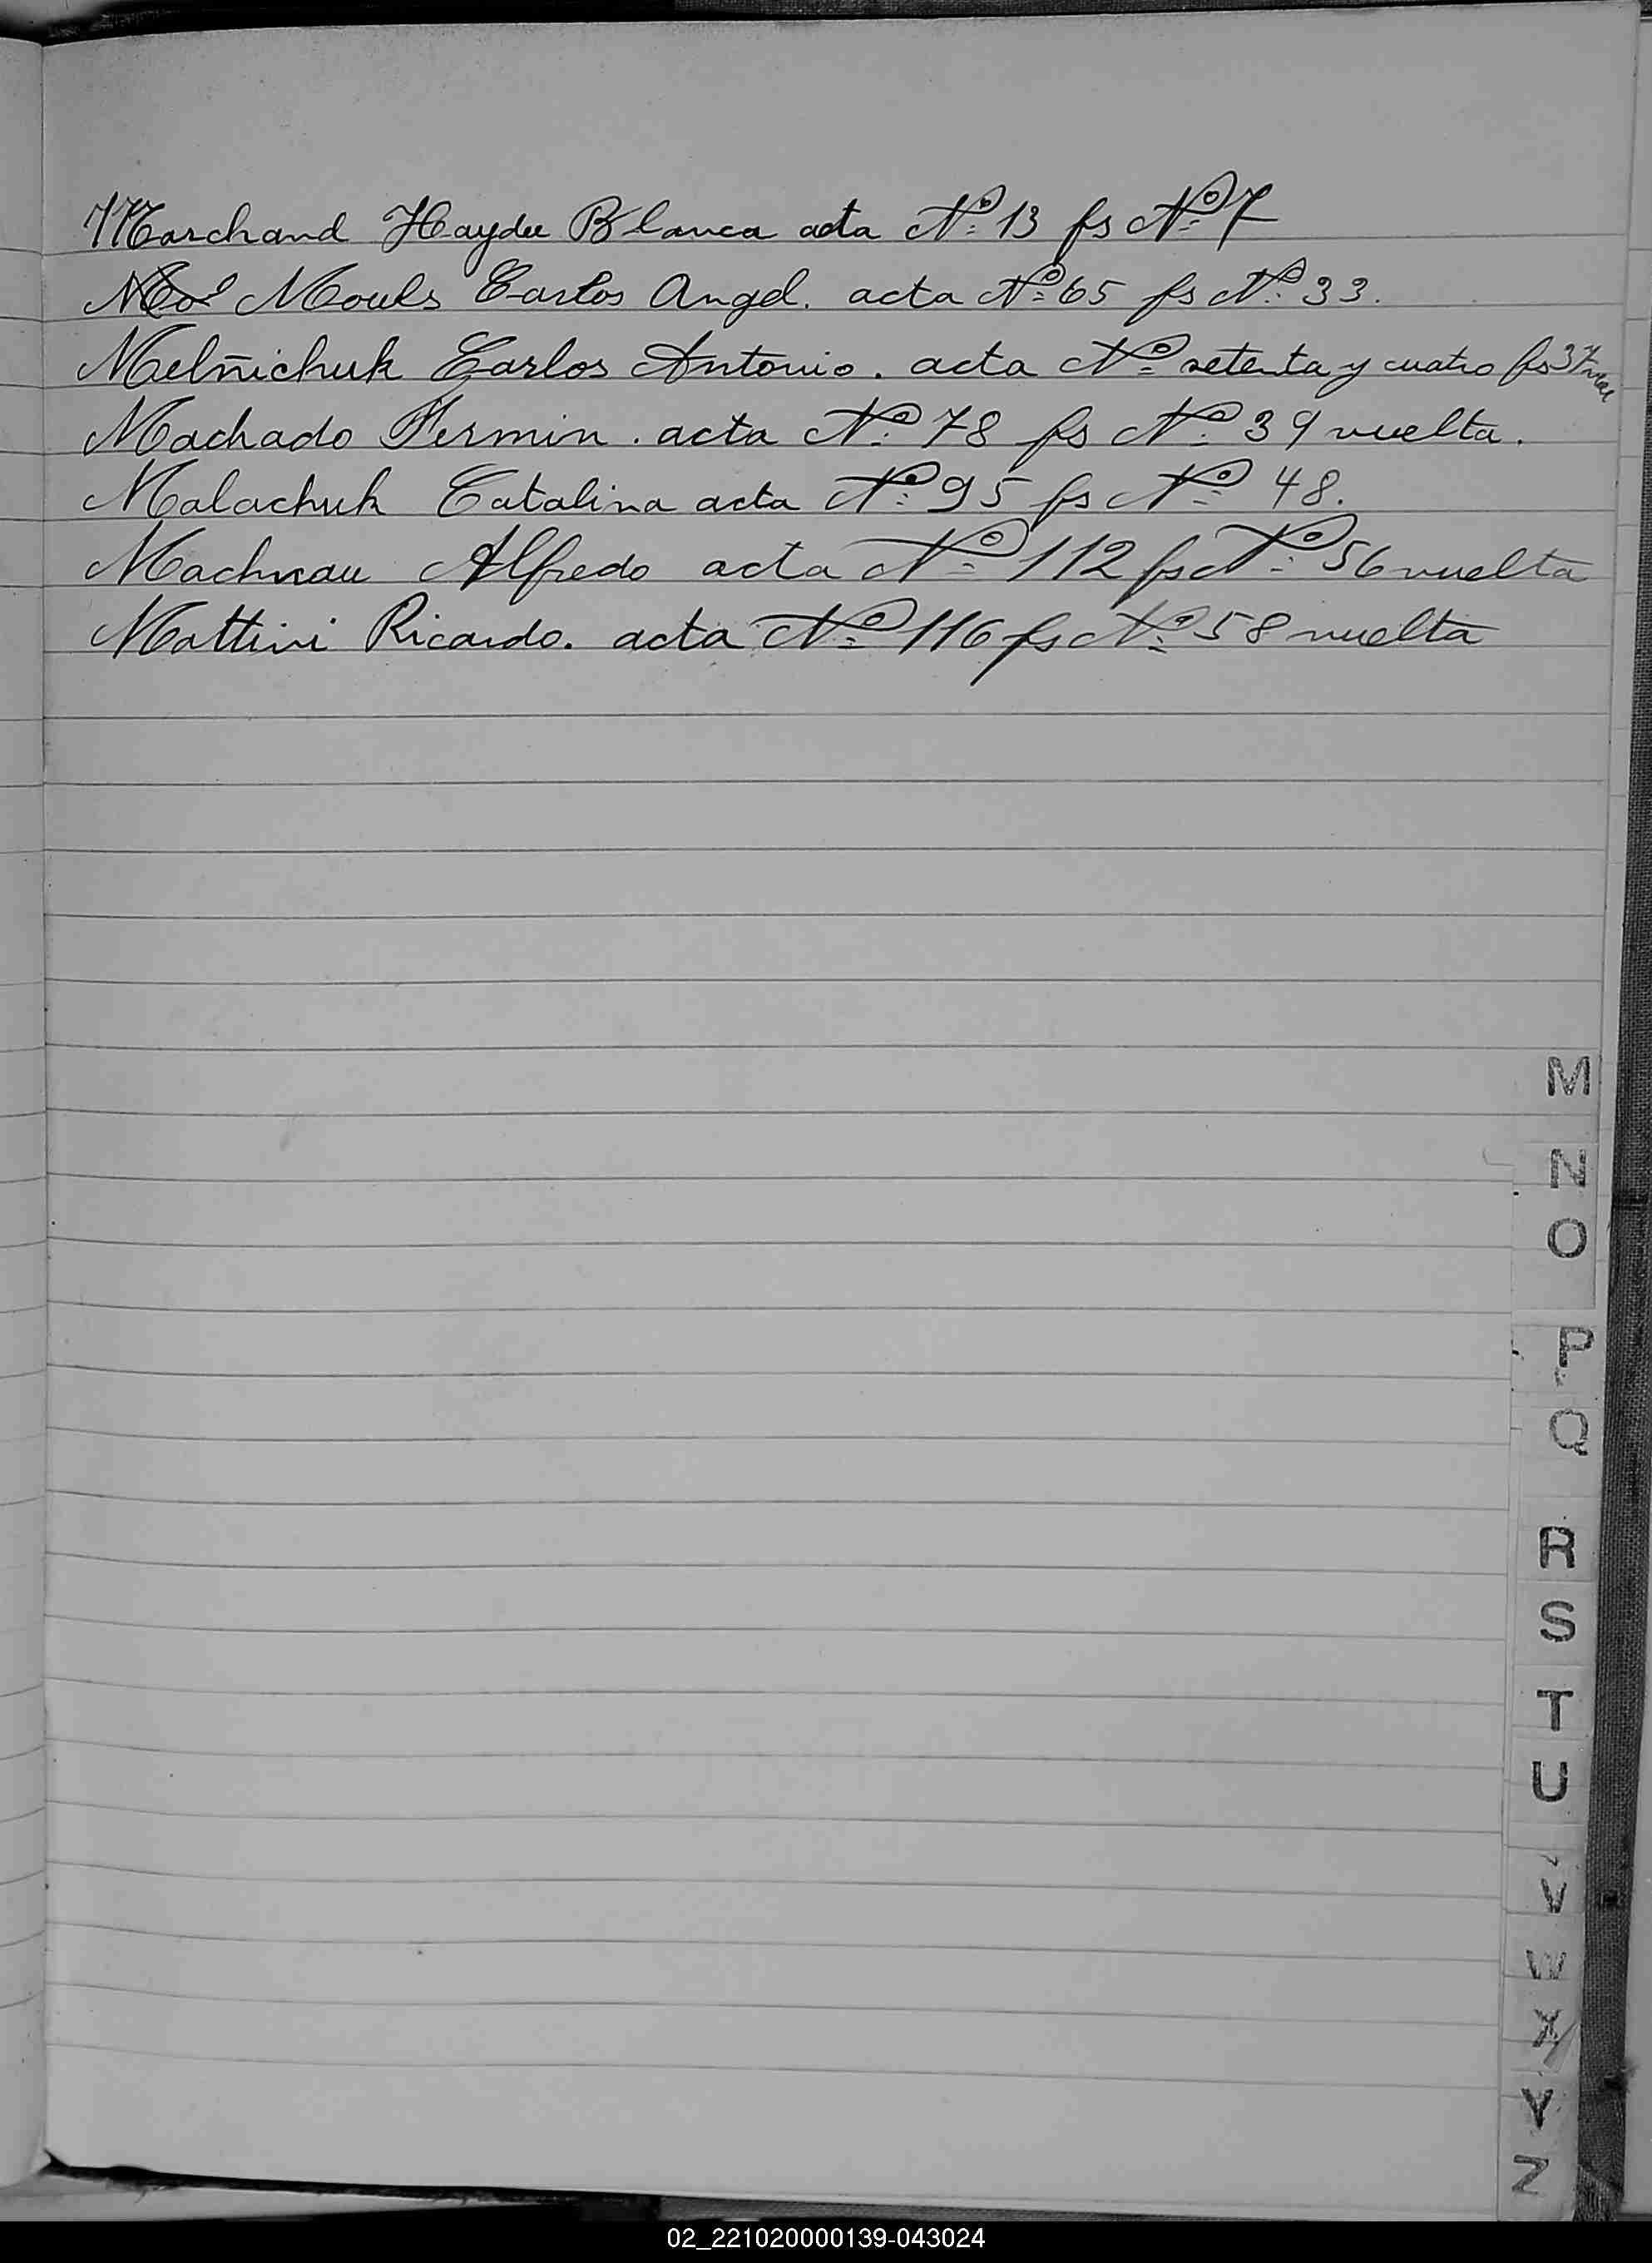 Marchand Haydee Blanca acta Nº 13 fs Nº 7
Mouls Carlos Angel. acta Nº 65 fs Nº 33.
Melñichuk Carlos Antonio. acta Nº setenta y cuatro fs 37
Machado Fermin. acta Nº 78 fs Nº 39 vuelta.
Malachuk Catalina acta Nº 95 fs Nº 48.
Alfredo acta Nº 112 fs Nº 56 vuelta
Mattini Ricardo. acta Nº 116 fs Nº 58 vuelta
M
N
O
P
Q
R
S
T
U
V
W
X
Y
Z
02_221020000139-043024